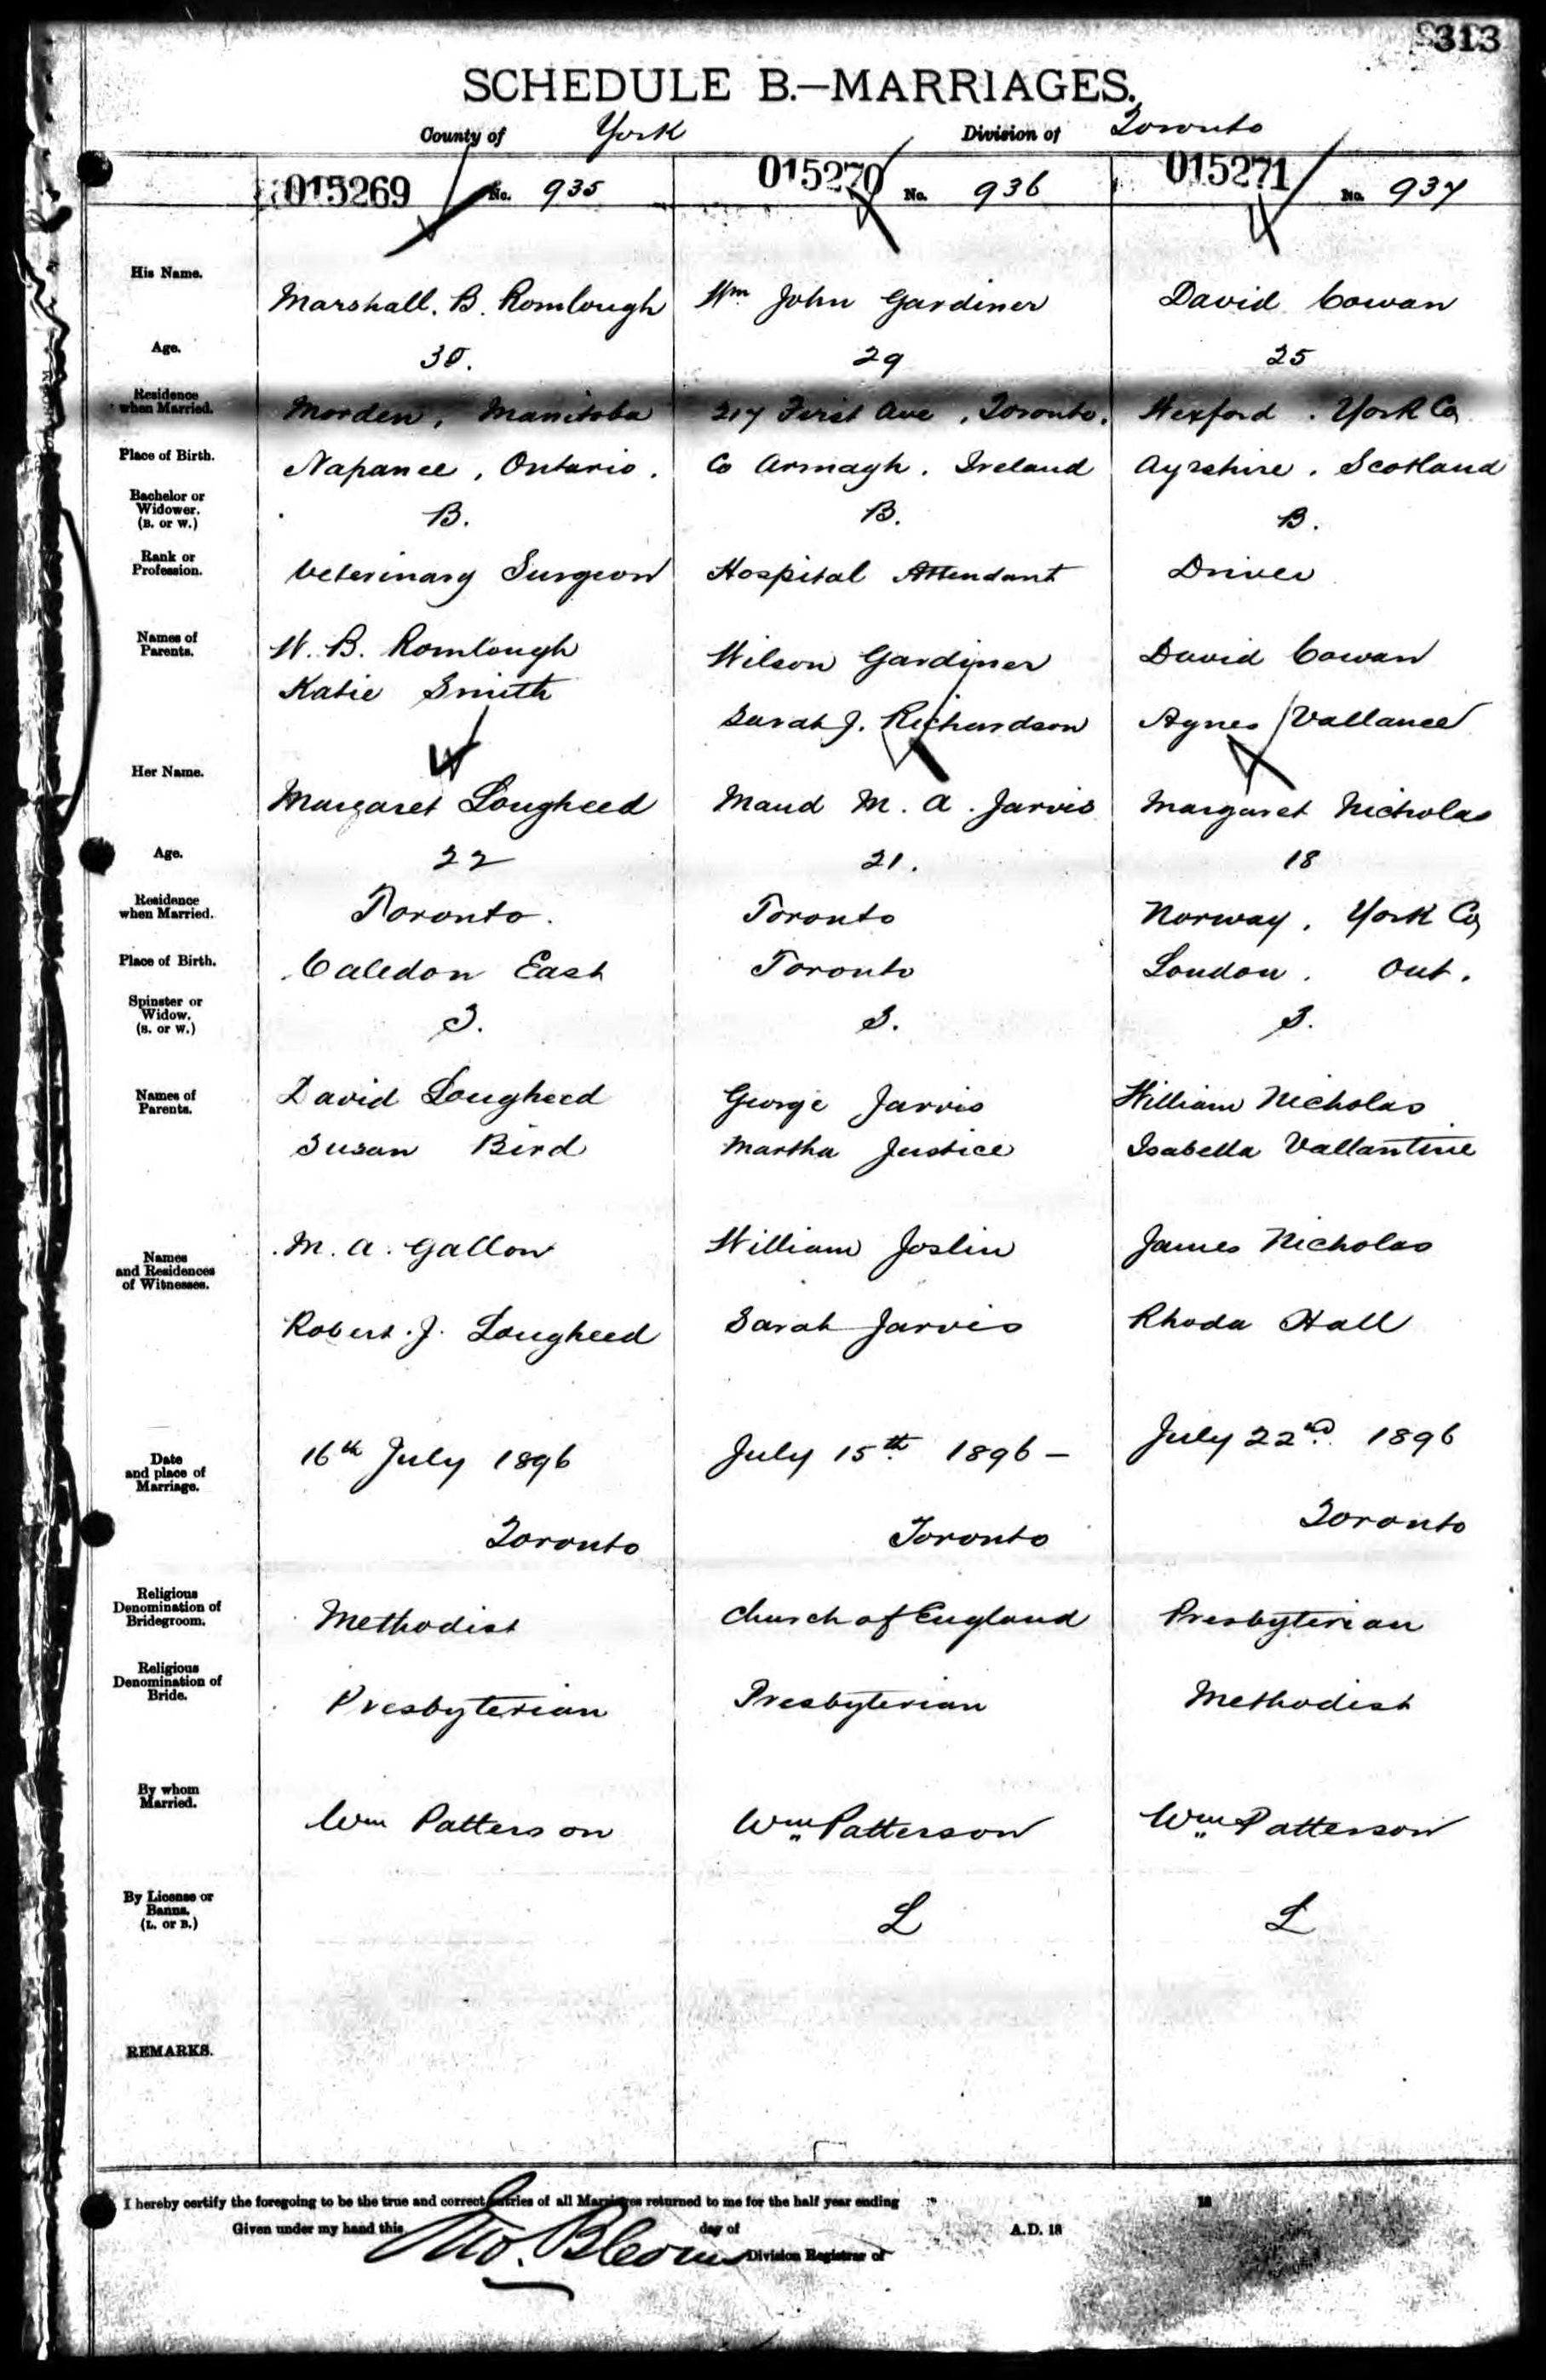 313
SCHEDULE B.—MARRIAGES.
County of York Division of Toronto
015269 No. 935 015270 No. 936 015271 No. 937
His Name. Marshall. B. Romlough Wm John Gardiner David Cowan
Age. 30. 29 25
Residence when Married. Morden, Manitoba 217 First Ave, Toronto. Wexford. York Co
Place of Birth. Napanee, Ontario. Co Armagh. Ireland Ayrshire. Scotland
Bachelor or Widower. (B. or W.) B. B. B.
Rank or Profession. Veterinary Surgeon Hospital Attendant Driver
Names of Parents. W. B. Romlough Wilson Gardiner David Cowan
Katie Smith Sarah J. Richardson Agnes Vallance
Her Name. Margaret Lougheed Maud M. A. Jarvis Margaret Nicholas
Age. 22 21. 18
Residence when Married. Toronto. Toronto Norway, York Co
Place of Birth. Caledon East Toronto London. Ont.
Spinster or Widow. (S. or W.) S. S. S.
Names of Parents. David Lougheed George Jarvis William Nicholas
Susan Bird Martha Justice Isabella Vallantine
Names and Residences of Witnesses. M. A. Gallow William Joslin James Nicholas
Robert. J. Lougheed Sarah Jarvis Rhoda Hall
Date and place of Marriage. 16th July 1896 July 15th 1896 — July 22nd 1896
Toronto Toronto Toronto
Religious Denomination of Bridegroom. Methodist Church of England Presbyterian
Religious Denomination of Bride. Presbyterian Presbyterian Methodist
By whom Married. Wm Patterson Wm Patterson Wm Patterson
By License or Banns. (L. or B.) L L
REMARKS.
I hereby certify the foregoing to be the true and correct entries of all Marriages returned to me for the half year ending 18
Given under my hand this day of A.D. 18
Division Registrar of